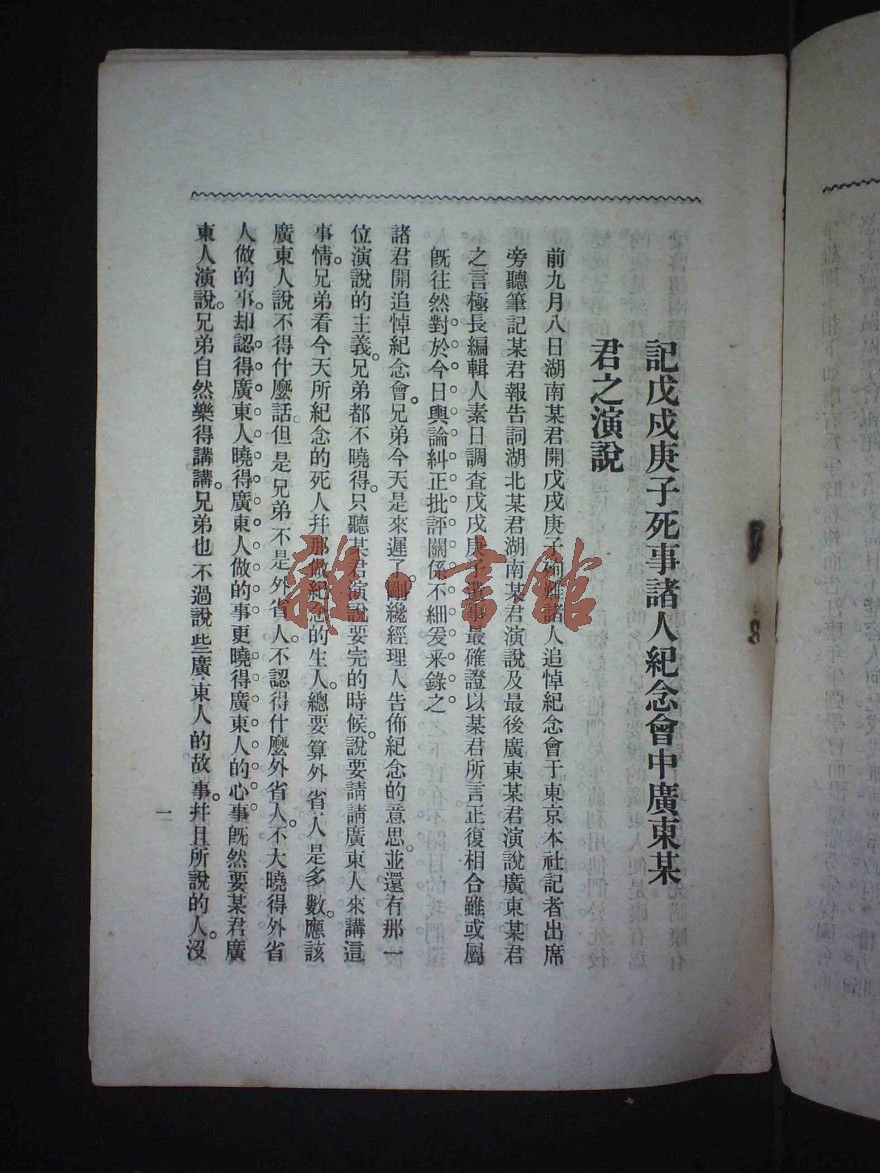 記戊戌庚子死事諸人紀念會中廣東某
君之演說
前九月八日湖南某君開戊戌庚子殉難諸人追悼紀念會于東京本社記者出席
旁聽筆記某君報告詞湖北某君湖南某君演說及最後廣東某君演說廣東某君
之言極長編輯人素日調查戊戌庚子逸事最確證以某君所言正復相合雖或屬
旣往然對於今日輿論糾正批評關係不細爰釆錄之
諸君開追悼紀念會。兄弟今天是來遲了。剛纔經理人告佈紀念的意思。並還有那一
位演說的主義。兄弟都不曉得。只聽某君演說要完的時候。說要請請廣東人來講這
事情。兄弟看今天所紀念的死人幷那做紀念的生人。總要算外省人是多數。應該
廣東人說不得什麼話。但是兄弟不是外省人。不認得什麼外省人。不大曉得外省
人做的事。却認得廣東人曉得廣東人做的事更曉得廣東人的心事。旣然要某君廣
東人演說。兄弟自然樂得講講。兄弟也不過說些廣東人的故事。幷且所說的人。沒
一
雜·書館